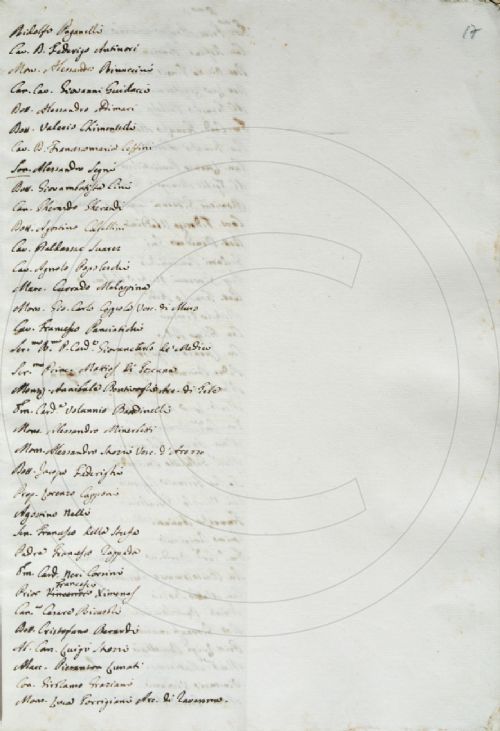 17
Ridolfo Paganelli
Cav. B. Federigo Antinori
Mon. Alessandro Rinuccini
Can. Cav. Giovanni Guidacci
Dott. Alessandro Adimari
Dott. Valerio Chimentelli
Cav. B. Francesco Maria Ceffini
Sen. Alessandro Segni
Dott. Giovambatista
Can. Gherardo Gherardi
Dott. Agostino Coltellini
Cav. Baldassar Suarez
Cav. Agnolo
Marc. Currado Malaspina
Mons. Gio. Carlo Coppola Vesc. di Muro
Cav. Francesco Panciatichi
Ser.mo R.mo P. Card.e Giovancarlo de' Medici
Ser.mo Princ. Mattias di Toscana
Annibale Bentivogli Arc. di Tebe
Em. Card.e Volunnio Bandinelli
Mons. Alessandro Minerbetti
Mons. Alessandro Strozzi Vesc. d'Arezzo
Dott. Jacopo Federighi
Prop. Lorenzo Capponi
Agostino Nelli
Sen. Francesco della Stufa
Padre Francesco
Em. Card. Neri Corsini
Francesco
Prior Vincenzio Ximenes
Can.co Cesare
Dott. Cristofano Berardi
Al. Cam. Luigi Strozzi
Marc. Pierantonio Lunati
Con. Girolamo Graziani
Mons. Luca Torrigiani Arc. di Ravenna.